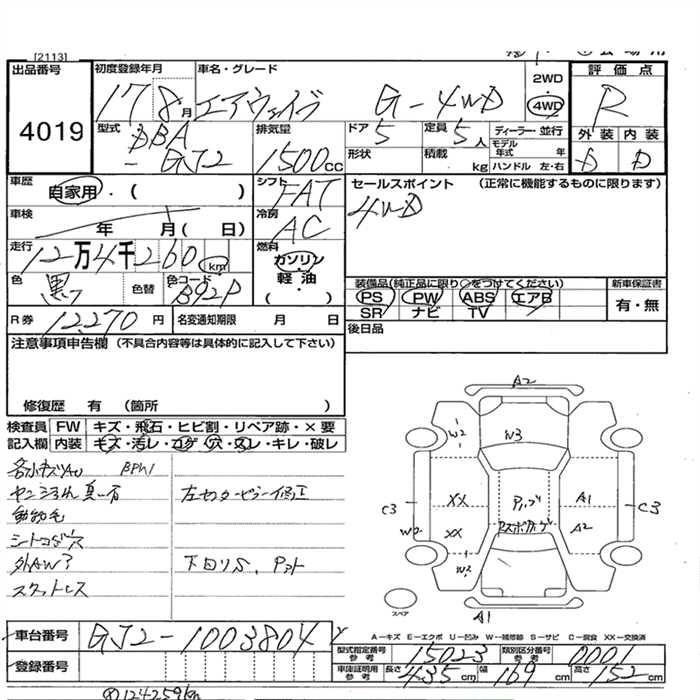 [2113]
出品番号 初度登録年月 車名・グレード 2WD 評価点
4019 17 8月 エアウェイブ G-4WD 4WD R
型式 排気量 ドア 定員 ディーラー・並行 外装 内装
DBA-GJ2 1500cc 5 5人 モデル年式 年 D D
形状 積載 kg ハンドル 左・右
車歴 自家用・( ) シフト FAT セールスポイント (正常に機能するものに限ります)
車検 年 月( 日) 冷房 AC 4WD
走行 12万4千260 km 燃料 ガソリン・軽油・( )
色 黒 色替 色コード B92P
装備品(純正品に限り○をつけてください) 新車保証書
PS PW ABS エアB 有・無
SR ナビ TV
R券 12,270円 名変通知期限 月 日 後日品
注意事項申告欄 (不具合内容等は具体的に記入して下さい)
修復歴 有 (箇所 )
検査員 FW キズ・飛石・ヒビ割・リペア跡・×要
記入欄 内装 キズ・汚レ・コゲ・穴・スレ・キレ・破レ
各小キズAU
動物毛
シートコゲ穴
外AW?
下回りS、
A2
W2 W3
C3 XX A1 C3
W2 XX A2
W2
スペア
A1
A-キズ E-エクボ U-凹み W-補修跡 S-サビ C-腐食 XX-交換済
車台番号 GJ2-1003804
型式指定番号 参考 15023 類別区分番号 参考 0001
登録番号
車庫証明用 参考 長さ 435cm 幅 169cm 高さ 152cm
①124259km